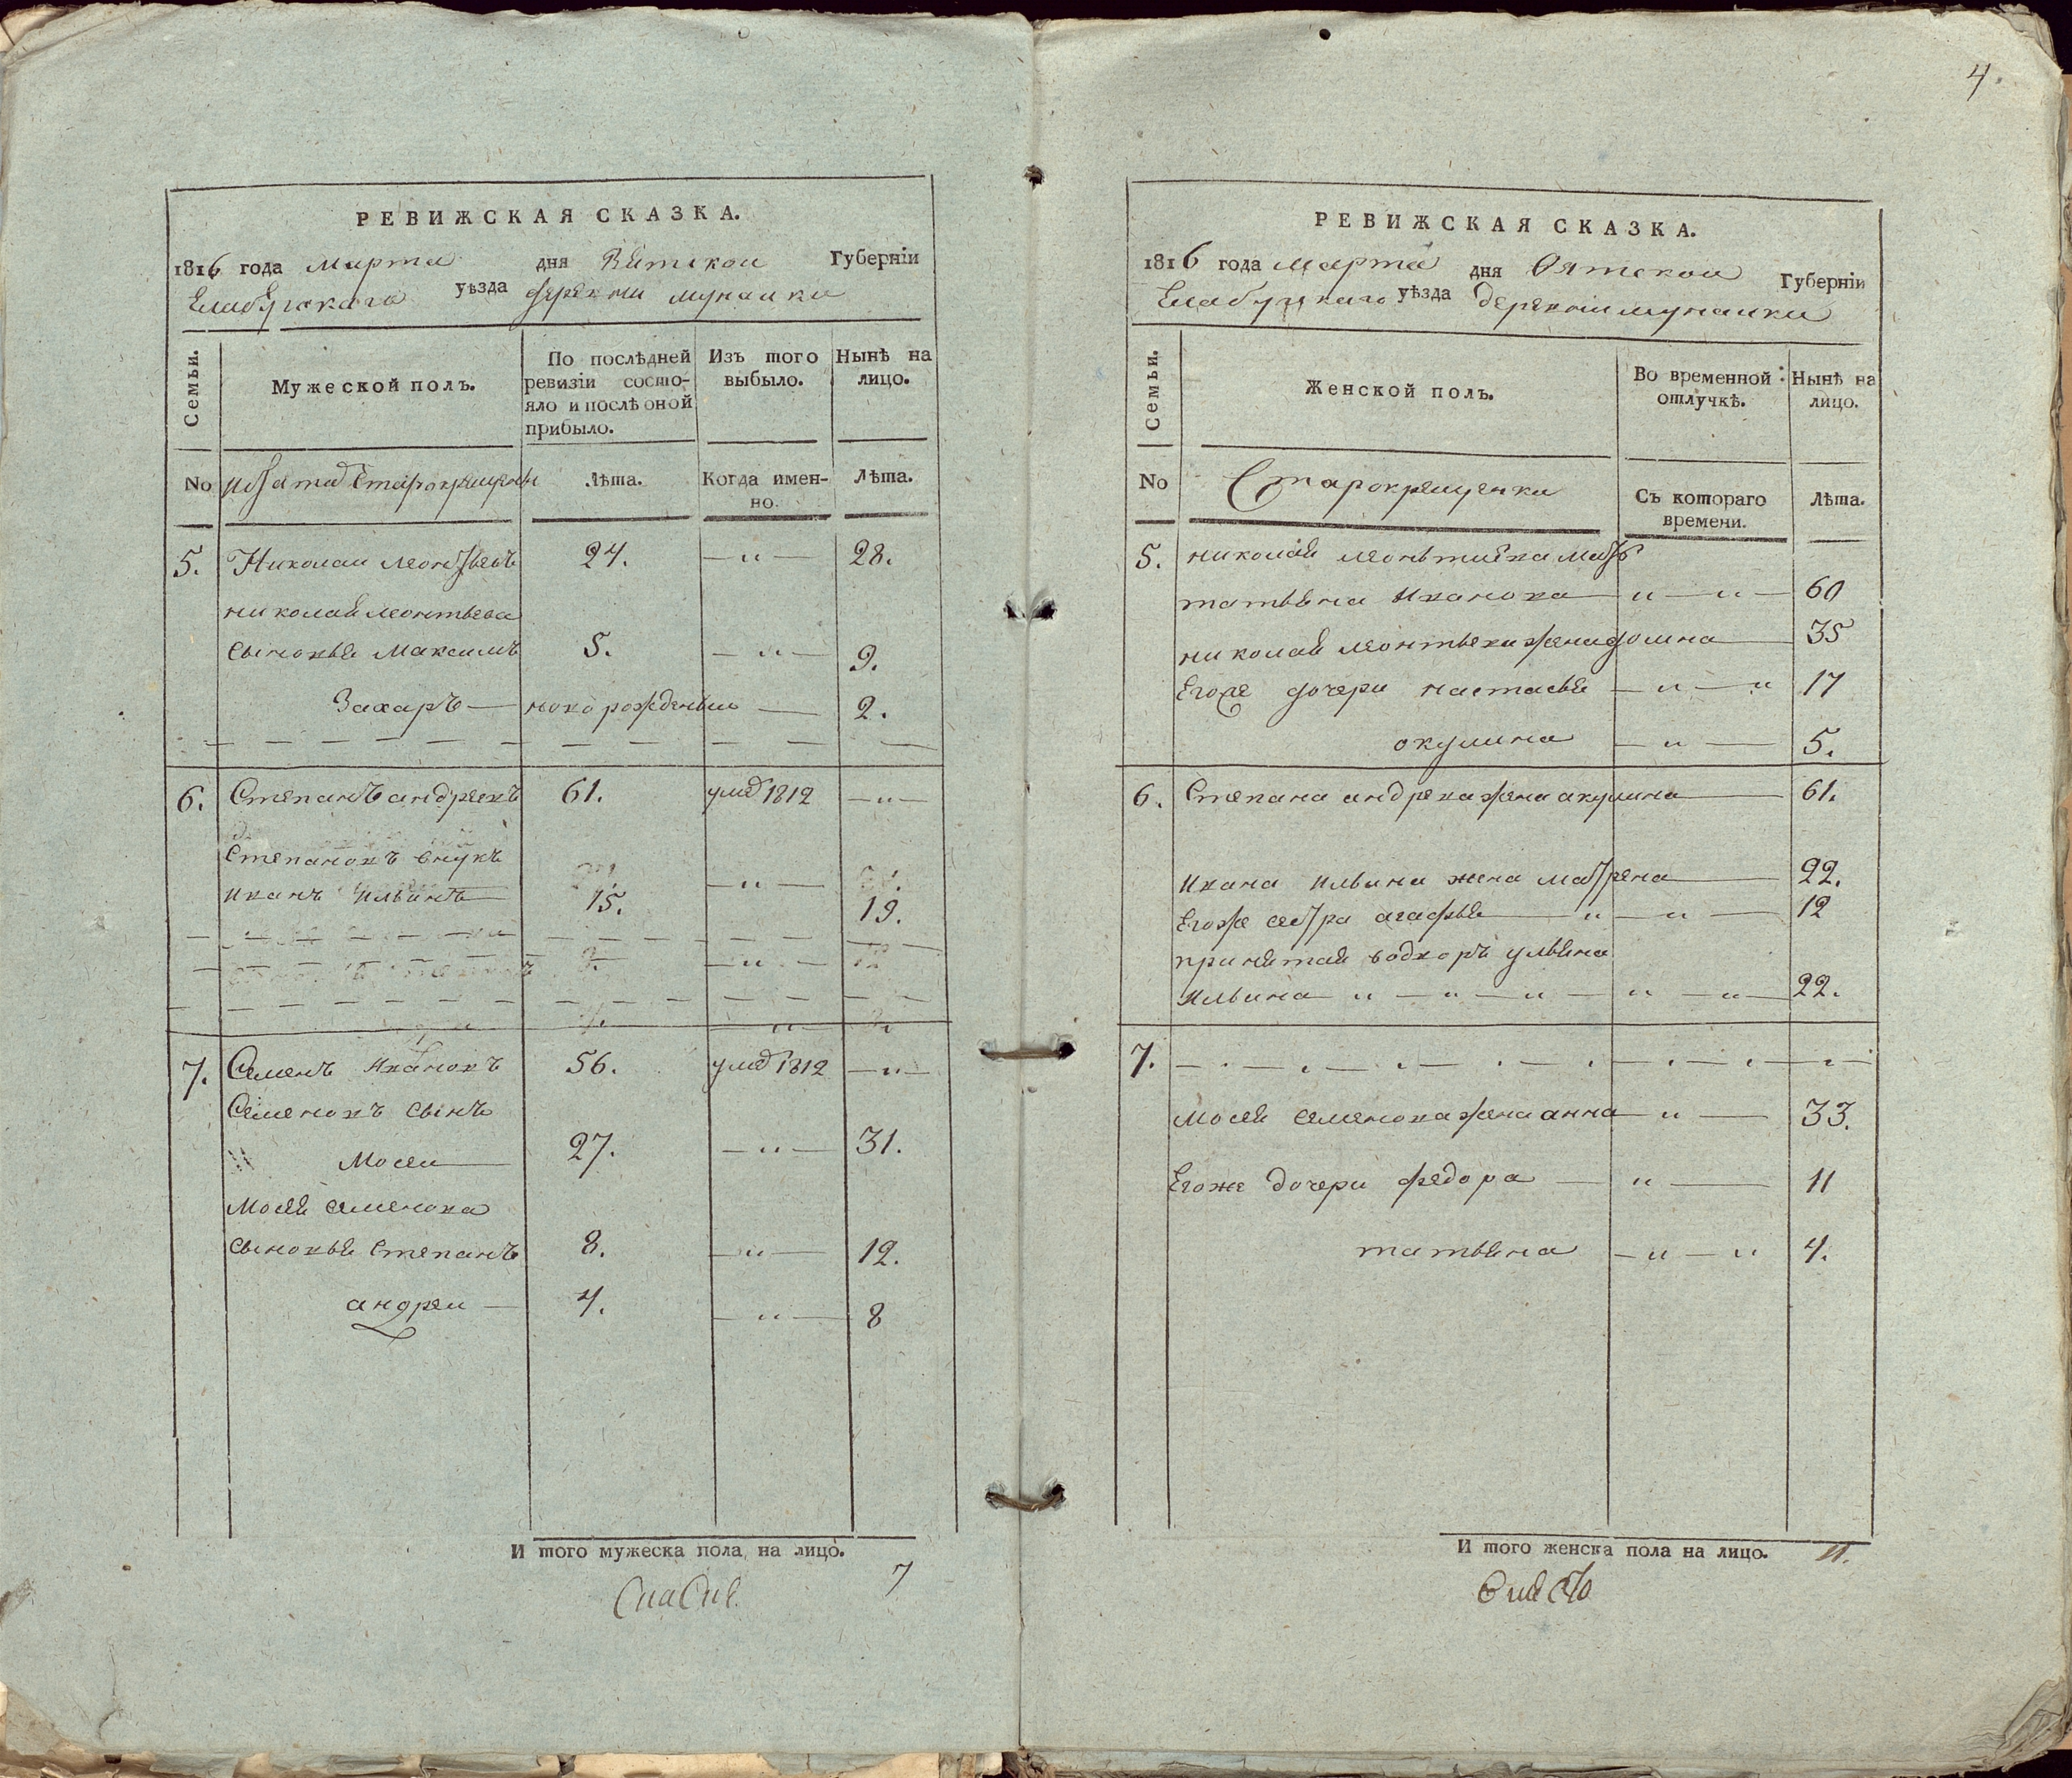 РЕВИЖСКАЯ СКАЗКА.
1816 года марта дня Вятской Губернїи
Елабугскаго уѣзда деревни мунайки
Семьи.
Мужеской полъ.
По послѣдней ревизїи состояло и послѣ оной прибыло.
Изъ того выбыло.
Нынѣ на лицо.
No
Лѣта.
Когда именно.
Лѣта.
5. Николай леонтьевъ 24. —"— 28.
николая леонтьева
сыновья Максимъ 5. —"— 9.
Захаръ — новорожденны — 2.
6. Степанъ андреевъ 61. 1812 —"—
Степановъ внукъ
иванъ ильинъ 15. —"— 19.
7. Семенъ ивановъ 56. 1812 —"—
Семеновъ сынъ
Мосеи — 27. —"— 31.
Мосея семенова
сыновья Степанъ 8. —"— 12.
андреи — 4. —"— 8
И того мужеска пола на лицо. 7
4.
РЕВИЖСКАЯ СКАЗКА.
1816 года марта дня Вятской Губернїи
Елабугскаго уѣзда деревни мунайки
Семьи.
Женской полъ.
Во временной отлучкѣ.
Нынѣ на лицо.
No
Старокрещенки
Съ котораго времени.
Лѣта.
5. николая леонтиева мать
татьяна Иванова — " — " — 60
николая леонтьева жена домна — 35
Егоже дочери настасья — " — " 17
окулина — " — 5.
6. Степана андреева жена акулина — 61.
ивана ильина жена матрена — 22.
Егоже сестра агафья — " — " — 12
принятая водворъ ульяна
ильина — " — " — " — " — " — 22.
7.
мосея семенова жена анна — " — 33.
Егоже дочери федора — " — 11
татьяна — " — " 4.
И того женска пола на лицо. 11.